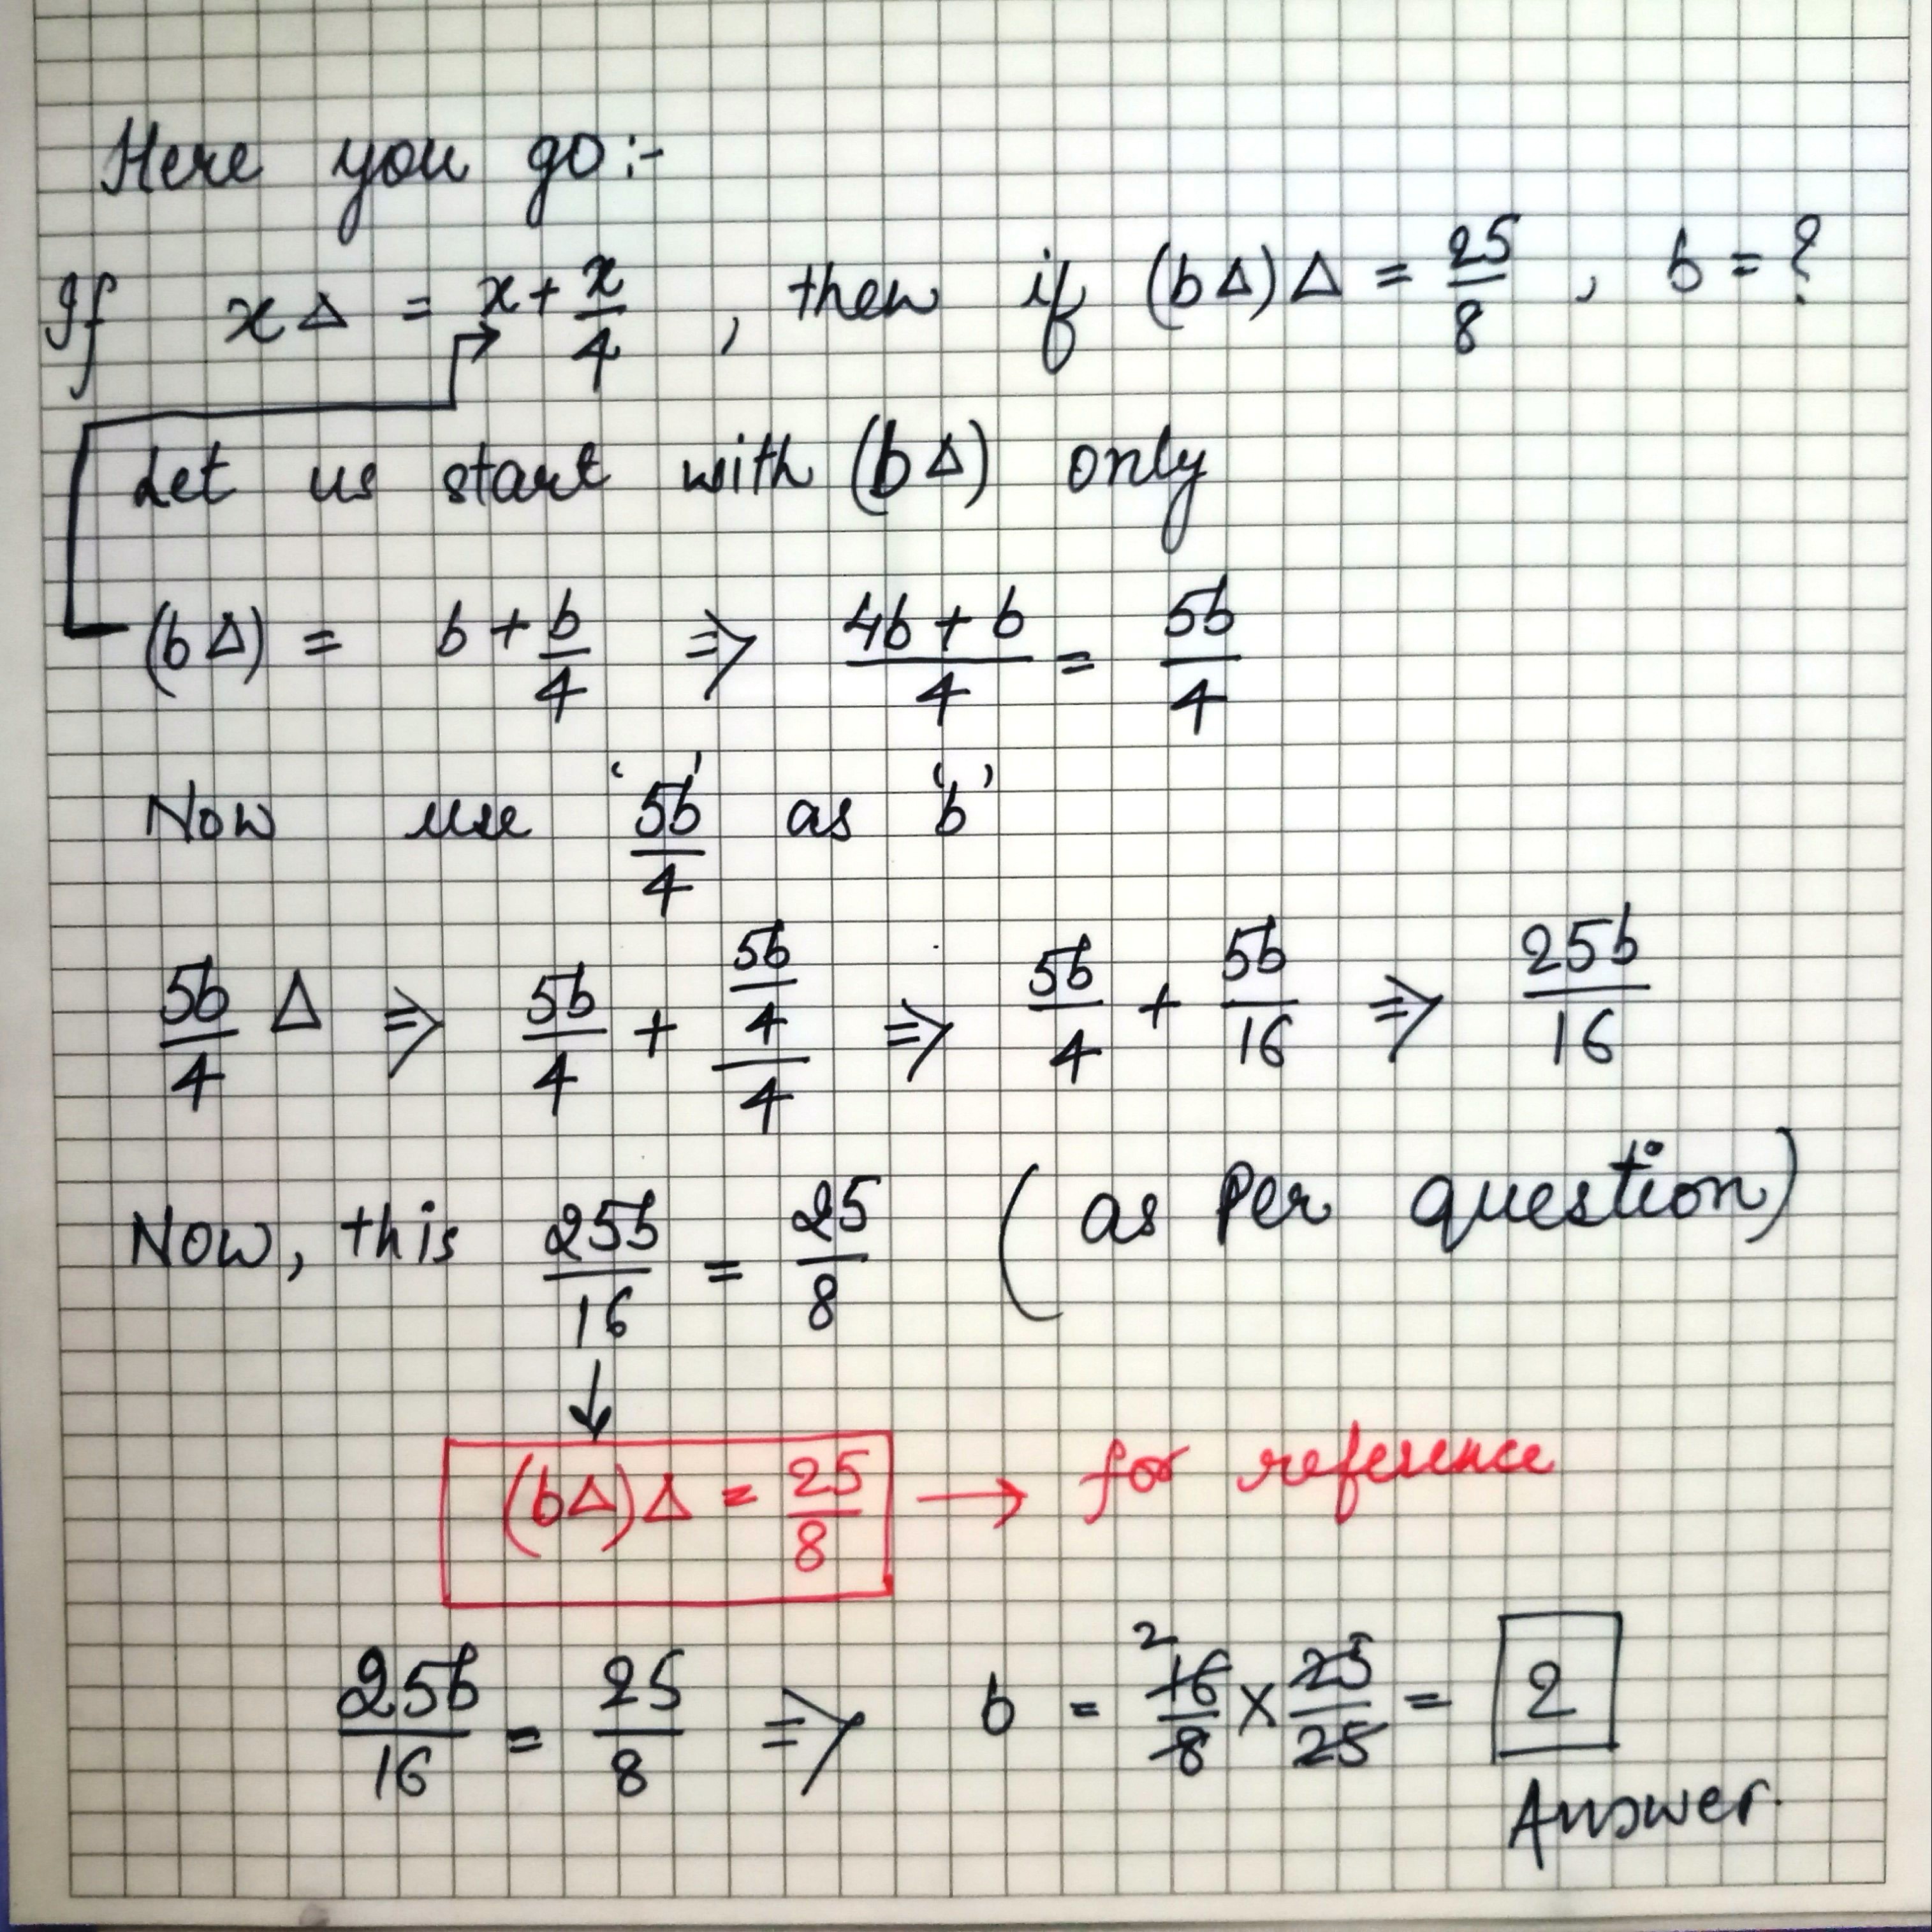 Here you go:-
If x∆ = x + x/4 , then if (b∆)∆ = 25/8 , b = ?
Let us start with (b∆) only
(b∆) = b + b/4 ⇒ (4b + b)/4 = 5b/4
Now use '5b/4' as 'b'
5b/4 ∆ ⇒ 5b/4 + (5b/4)/4 ⇒ 5b/4 + 5b/16 ⇒ 25b/16
Now, this 25b/16 = 25/8 (as per question)
↓
(b∆)∆ = 25/8 → for reference
25b/16 = 25/8 ⇒ b = 2 16/8 × 25/25 = 2
Answer.